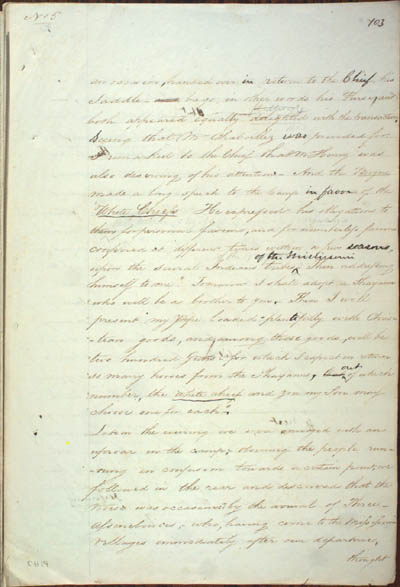 No 5
103
in return to the Chief his
Saddle bags in other words his Purse, and
both appeared equally delighted with the transaction
Seeing that Mr Chaboillez was provided for
I remarked to the Chief that Mr Henry was
also deserving of his attention. And the Borgne
made a long speech to the Camp in favor of the
White Chiefs He expressed his obligations to
them for favors, and for numberless favors
conferred at different times within a few seasons,
of the Missisouri
upon the several Indians tribes then addressing
himself to one Tomorrow I shall adopt a Shayenne
who will be a brother to you. Then I will
present my Pipe loaded plentifully with
goods, and among those goods, will be
two hundred Guns for which I expect in return
so many horses from the Shayennes, out of which
number, the White chief and you my Son may
choose one for each"
Late in the evening we were alarmed with an
uproar in the camp; observing the people run-
-ning in confusion towards a certain point, we
followed in the rear and discovered that the
noise was occasioned by the arrival of Three
Assineboines; who, having come to the Missisouri
Villages immediately after our departure,
thought